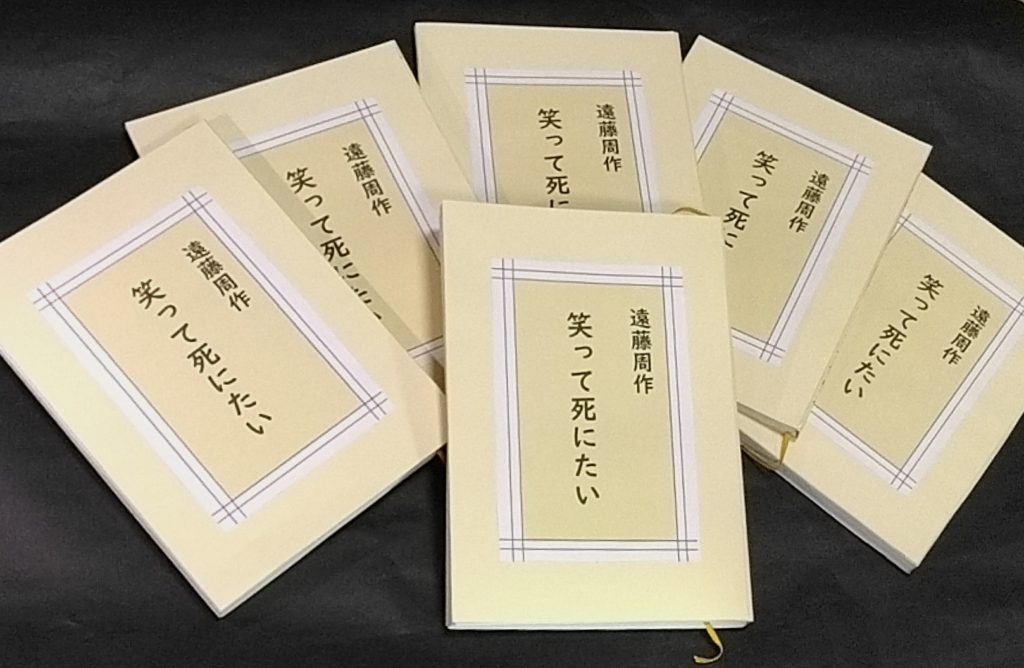 遠藤周作
笑って死にたい
遠藤周作
笑って死にたい
遠藤周作
笑って死に
遠藤周作
笑って死に
遠藤周作
笑って死にたい
遠藤周作
笑って死にたい